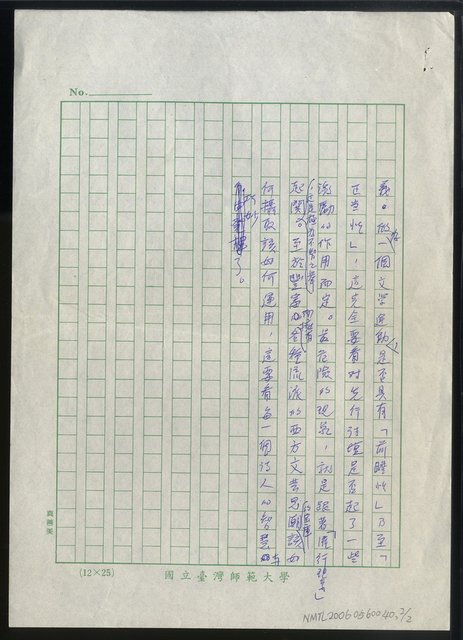 No.
義。做為一個文學運動,是否具有「前瞻性」乃至「
正當性」,這完全要看對先行詩壇是否起了一些
激勵的作用而定。最危險的現象,就是跟著「流行現象」
起鬨。至於豐富的各種流派的西方文藝思潮該如
何攝取該如何運用,這要看每一個詩人的智慧與
巧妙
了。
真善美
(12×25)
國立臺灣師範大學
NMTL20060560040, 2/2